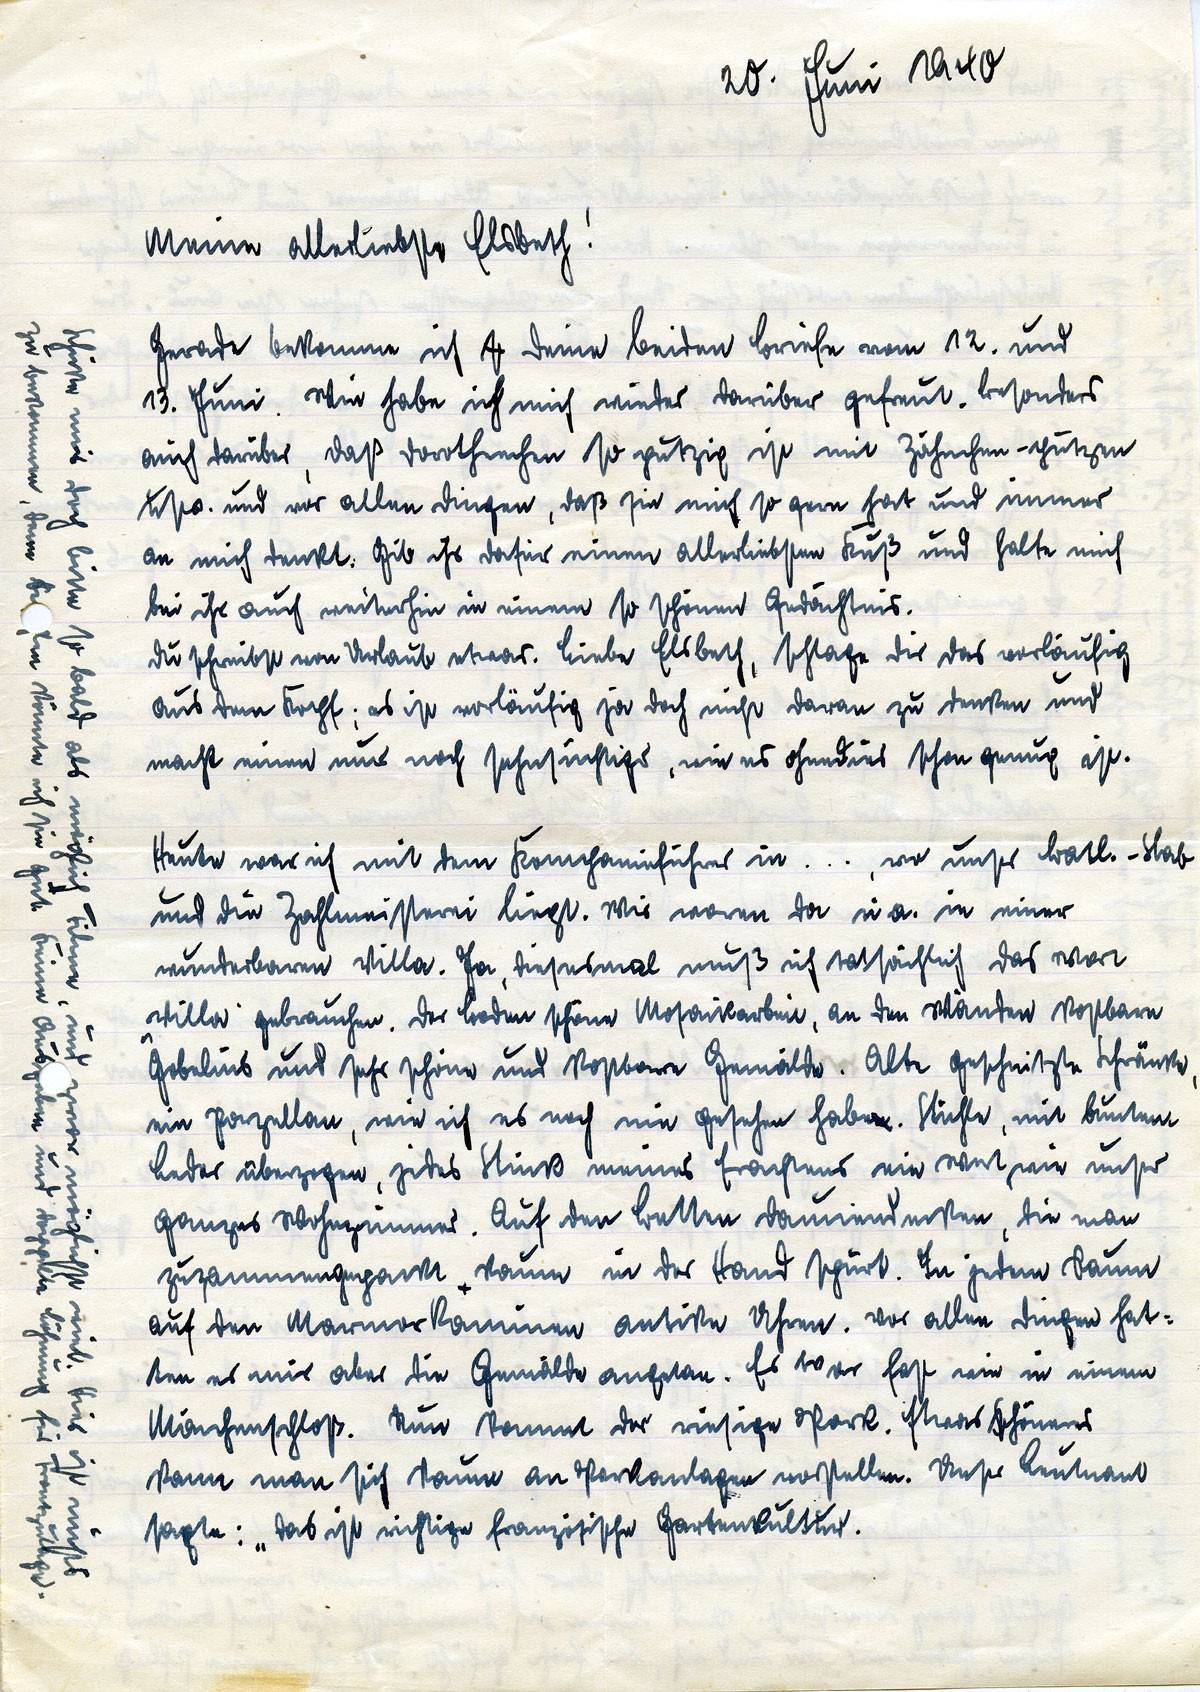 20. Juni 1940
Meine allerliebste Elsbeth!
Gerade bekomme ich deine beiden Briefe vom 12. und
13. Juni. Wie habe ich mich wieder darüber gefreut. Besonders
auch darüber, daß Dorotheechen so putzig ist mit Zähnchen-putzen
usw. und vor allen Dingen, daß sie mich so gern hat und immer
an mich denkt. Gib ihr dafür einen allerliebsten Kuß und halte mich
bei ihr auch weiterhin in einem so schönen Gedächtnis.
Du schreibst von Urlaub etwas. Liebe Elsbeth, schlage dir das vorläufig
aus dem Kopf; es ist vorläufig ja doch nicht daran zu denken und
macht einen nur noch sehnsüchtiger, wie es ohnedies schon genug ist.
Heute war ich mit dem Kompanieführer in ..., wo unser Batl.-Stab
und die Zahlmeisterei liegt. Wir waren da u.a. in einer
wunderbaren Villa. Ja, diesesmal muß ich tatsächlich das Wort
„Villa" gebrauchen. Der Boden schöne Mosaikarbeit, an den Wänden kostbare
Gobelins und sehr schöne und kostbare Gemälde. Alte geschnitzte Schränke,
ein Porzellan, wie ich es noch nie gesehen habe. Stühle, mit buntem
Leder überzogen, jedes Stück meines Erachtens ein Wert wie unser
ganzes Wohnzimmer. Auf den Betten Daunendecken, die man
zuzammengepackt kaum in der Hand spürt. In jedem Raum
auf den Marmorkaminen antike Uhren. Vor allen Dingen hat-
ten es mir aber die Gemälde angetan. Es war fast wie in einem
Märchenschloß. Nun kommt der riesige Park. Etwas schöneres
kann man sich kaum an Parkanlagen vorstellen. Unser Leutnant
sagte: „Das ist richtige französische Gartenkultur.
Schicke mir doch bitte so bald als möglich Filme, und zwar möglichst viel. Hier ist nichts
zu bekommen, denn könnte ich sie gut. Keine Ausgaben und doppelte Löhnung bei Frontzulage.